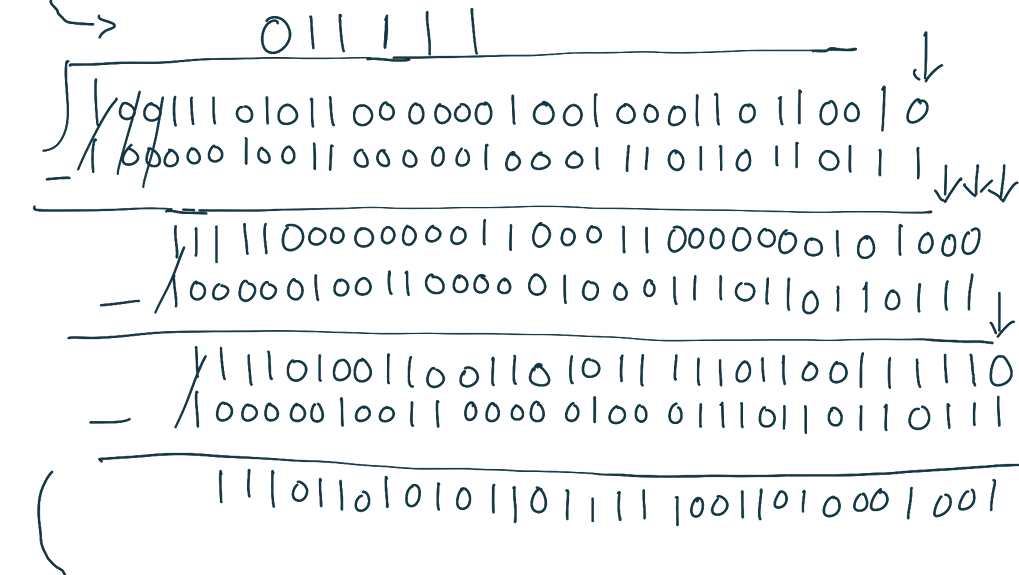 011111
100111010110000001001000110110010
- 100000100110000010001110110110111
111110000000011000110000000101000
- 100000100110000010001110110110111
111101001100110101111101100111110
- 100000100110000010001110110110111
11101101010110111110011010001001